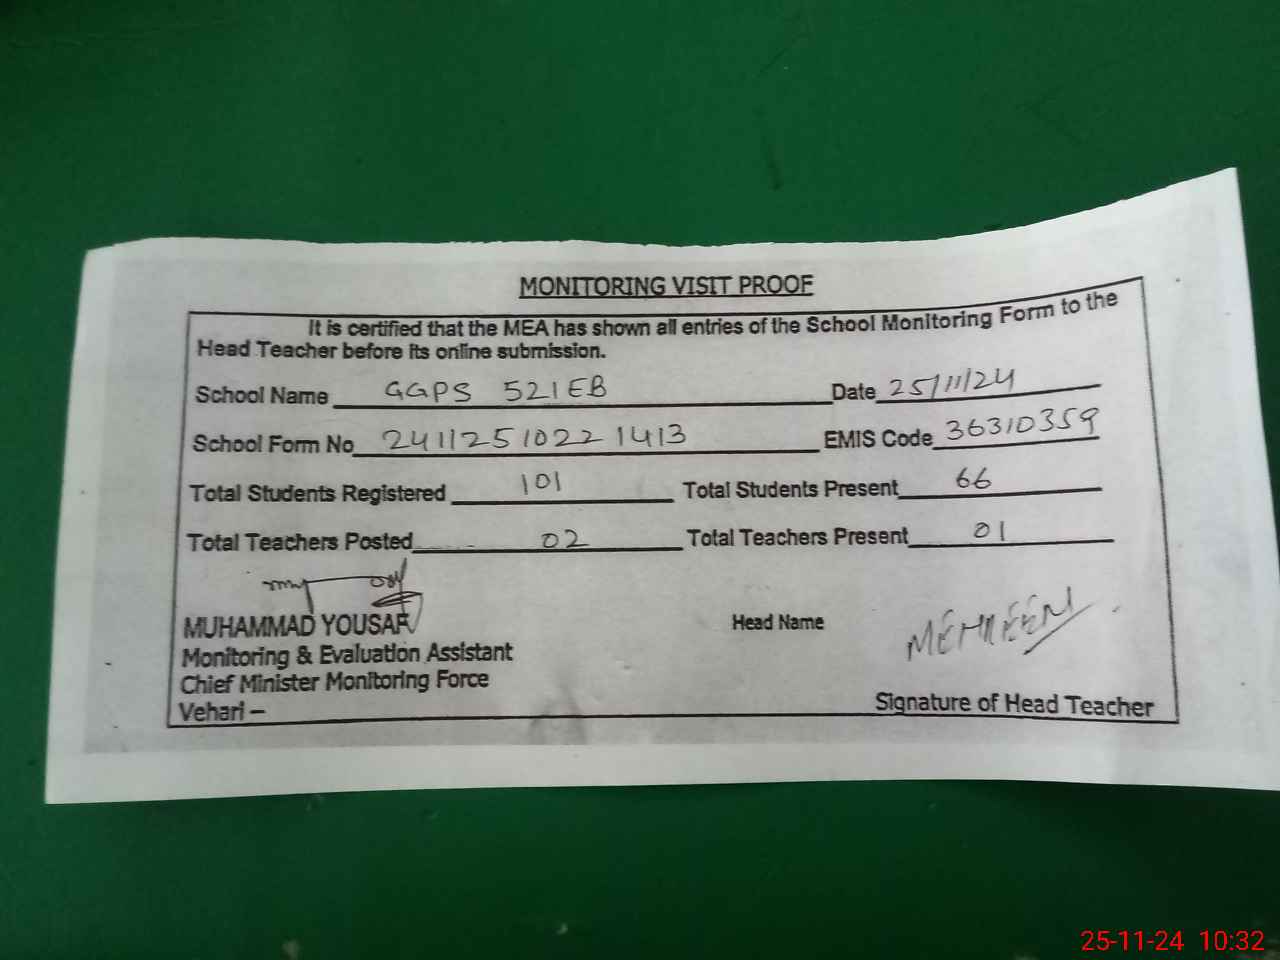 MONITORING VISIT PROOF
It is certified that the MEA has shown all entries of the School Monitoring Form to the
Head Teacher before its online submission.
School Name GGPS 521EB Date 25/11/24
School Form No 241125102221413 EMIS Code 36310359
Total Students Registered 101 Total Students Present 66
Total Teachers Posted 02 Total Teachers Present 01
MUHAMMAD YOUSAF
Head Name MEHREEN
Monitoring & Evaluation Assistant
Chief Minister Monitoring Force
Vehari –
Signature of Head Teacher
25-11-24 10:32